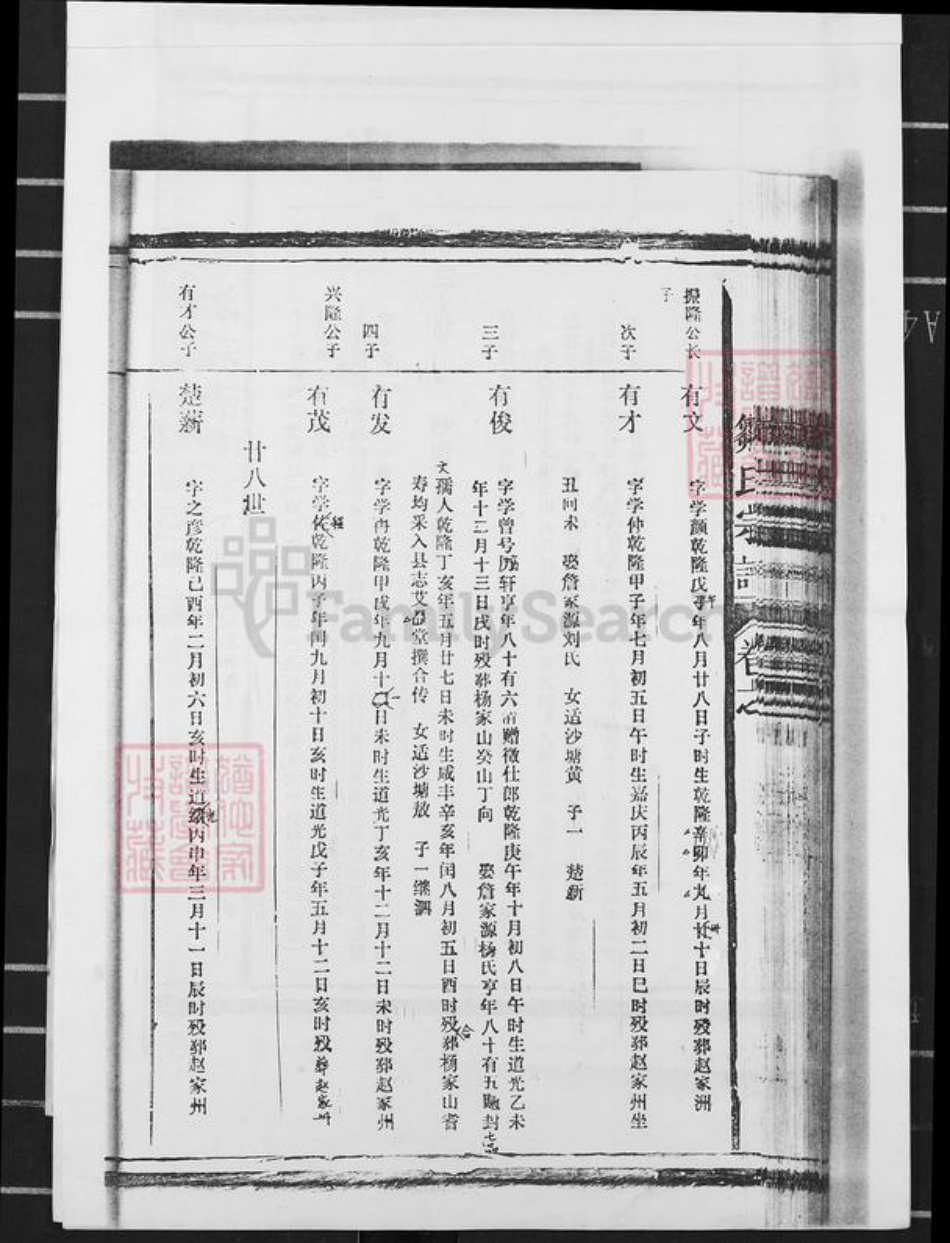 邹氏宗谱 卷之
振隆公长
子
有文
字学颜乾隆戊子年八月廿八日子时生乾隆辛卯年九月廿十日辰时殁葬赵家洲
午
次子
有才
字学仲乾隆甲子年七月初五日午时生嘉庆丙辰年五月初二日巳时殁葬赵家州坐
丑向未 娶詹家源刘氏 女适沙塘黄 子一 楚新
三子
有俊
字学曾号历轩享年八十有六 赠徵仕郎乾隆庚午年十月初八日午时生道光乙未
年十二月十三日戌时殁葬杨家山癸山丁向 娶詹家源杨氏享年八十有五 封七品
孺人乾隆丁亥年五月廿七日未时生咸丰辛亥年闰八月初五日酉时殁葬杨家山
合
文
寿均采入县志艾 堂撰合传 女适沙塘敖 子一继
四子
有发
字学冉乾隆甲戌年九月十 日未时生道光丁亥年十二月十二日未时殁葬赵家州
兴隆公子
有茂
字学 乾隆丙子年闰九月初十日亥时生道光戊子年五月十二日亥时殁葬赵家州
廿八世
有才公子
楚新
字之彦乾隆己酉年二月初六日亥时生道 丙申年三月十一日辰时殁葬赵家州
光
FamilySearch